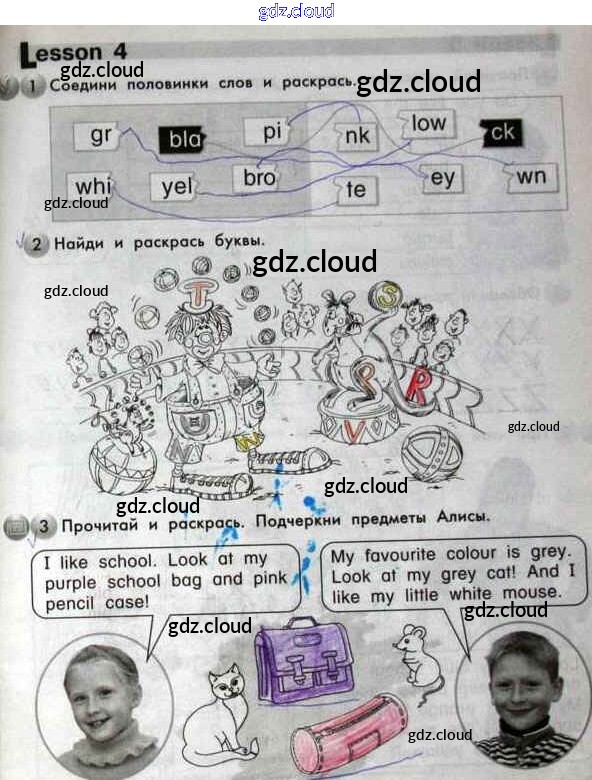 gdz.cloud
Lesson 4
gdz.cloud
1 Соедини половинки слов и раскрась.
gdz.cloud
gr bla pi nk low ck
whi yel bro te ey wn
gdz.cloud
2 Найди и раскрась буквы.
gdz.cloud
gdz.cloud
T S
P R
V
N U W
gdz.cloud
gdz.cloud
gdz.cloud
3 Прочитай и раскрась. Подчеркни предметы Алисы.
I like school. Look at my
purple school bag and pink
pencil case!
My favourite colour is grey.
Look at my grey cat! And I
like my little white mouse.
gdz.cloud
gdz.cloud
gdz.cloud
gdz.cloud